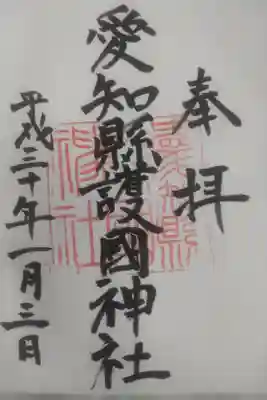 奉拝
愛知縣護國神社
平成三十年一月三日